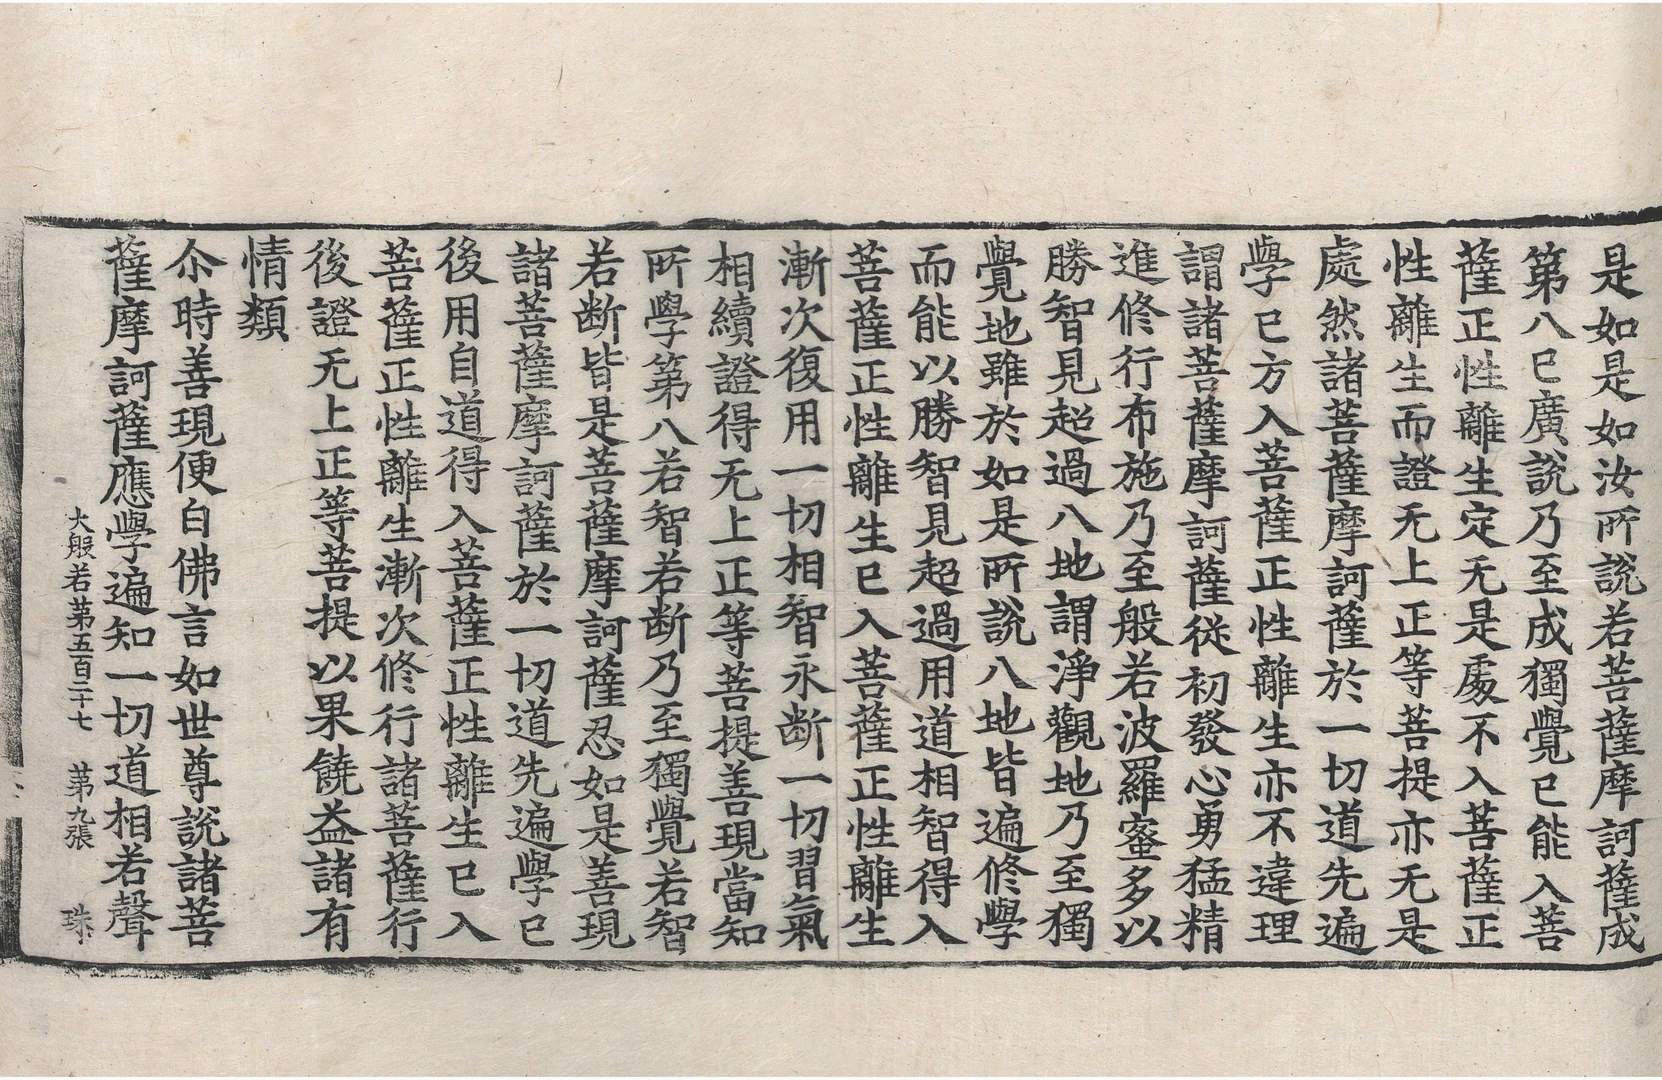 是如是如汝所說若菩薩摩訶薩成
第八已廣說乃至成獨覺已能入菩
薩正性離生定无是處不入菩薩正
性離生而證无上正等菩提亦无是
處然諸菩薩摩訶薩於一切道先遍
學已方入菩薩正性離生亦不違理
謂諸菩薩摩訶薩從初發心勇猛精
進修行布施乃至般若波羅蜜多以
勝智見超過八地謂淨觀地乃至獨
覺地雖於如是所說八地皆遍修學
而能以勝智見超過用道相智得入
菩薩正性離生已入菩薩正性離生
漸次復用一切相智永斷一切習氣
相續證得无上正等菩提善現當知
所學第八若智若斷乃至獨覺若智
若斷皆是菩薩摩訶薩忍如是善現
諸菩薩摩訶薩於一切道先遍學已
後用自道得入菩薩正性離生已入
菩薩正性離生漸次修行諸菩薩行
後證无上正等菩提以果饒益諸有
情類
尒時善現便白佛言如世尊說諸菩
薩摩訶薩應學遍知一切道相若聲
大般若第五百二十七 第九張 珠